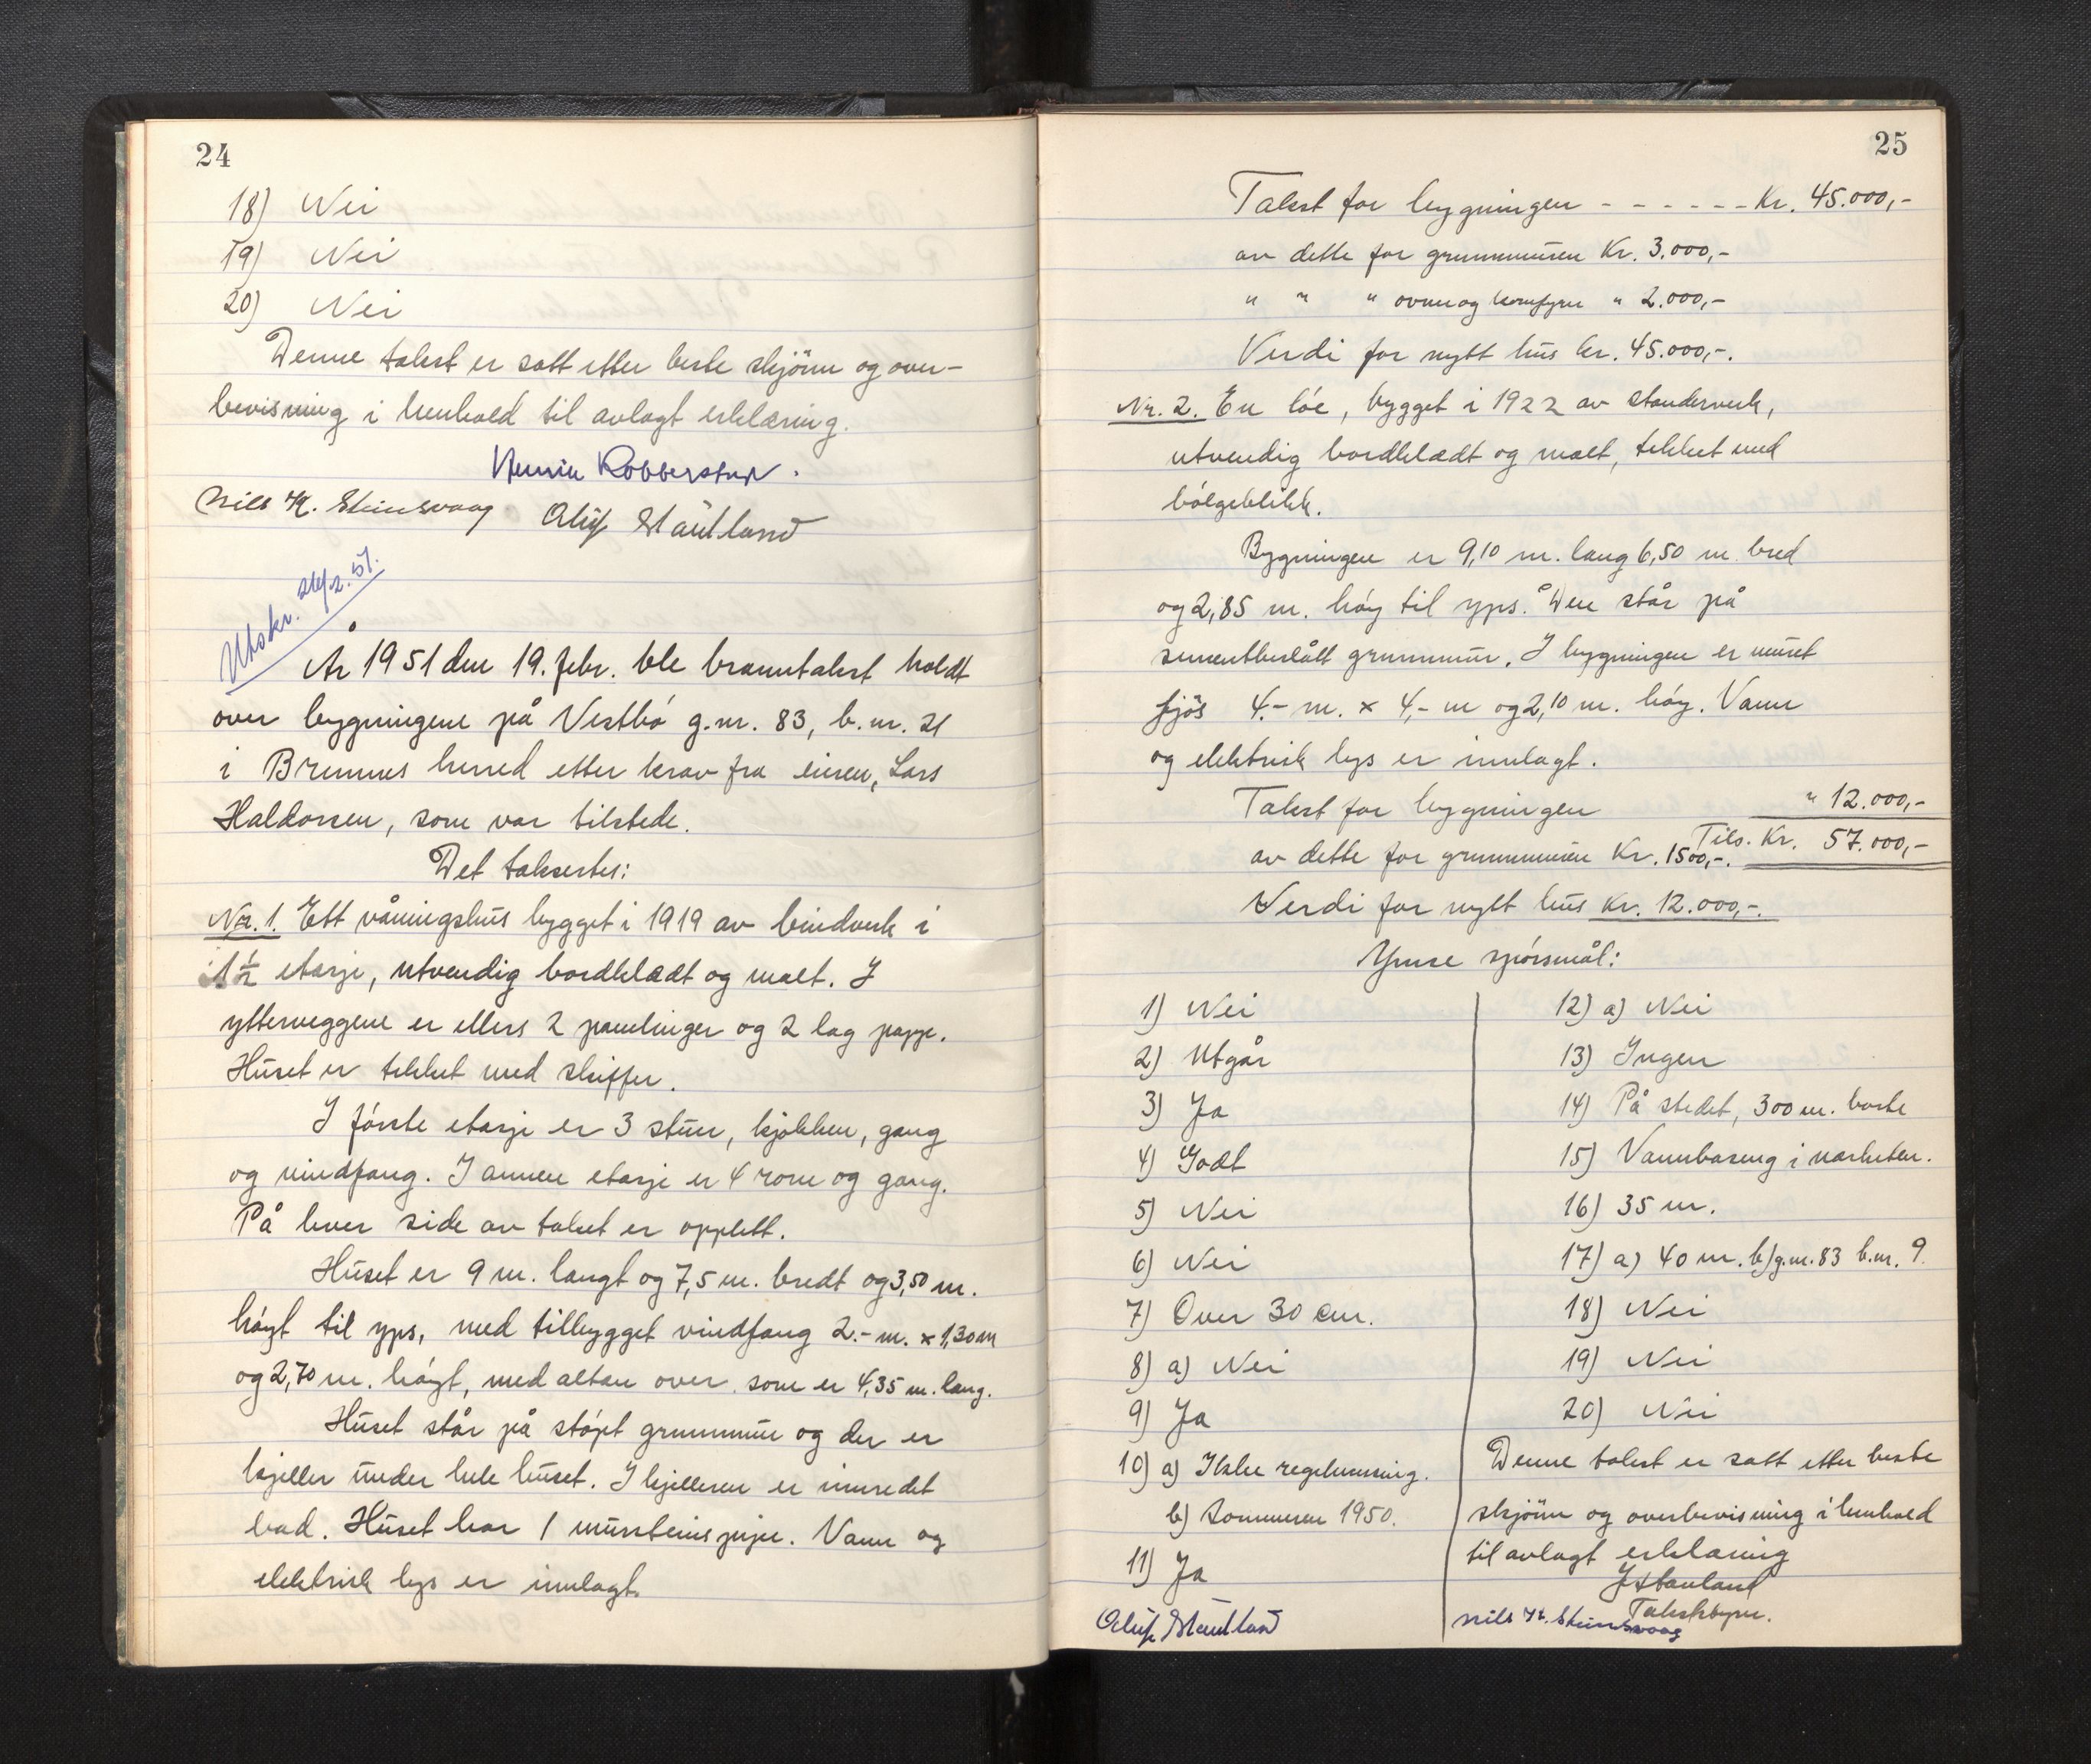 24
18) Nei
19) Nei
20) Nei
Denne takst er satt etter beste skjönn og over-
bevisning i henhold til avlagt erklæring.
Robberstad.
Nils H. Steinsvaag Oluf Stautland
Utskr. 26/2. 51.
År 1951 den 19. febr. ble branntakst holdt
over bygningene på Vestbö g.nr. 83, b.nr. 21
i Bremnes herred etter krav fra eieren, Lars
Haldorsen, som var tilstede.
Det taksertes:
Nr. 1. Ett våningshus bygget i 1919 av bindverk i
1½ etasje, utvendig bordklædt og malt. I
ytterveggene er ellers 2 panelinger og 2 lag papp.
Huset er tekket med skiffer.
I förste etasje er 3 stuer, kjökken, gang
og vindfang. I annen etasje er 4 rom og gang.
På hver side av taket er opplett.
Huset er 9 m. langt og 7,5 m. bredt og 3,50 m.
höyt til yps, med tilbygget vindfang 2.- m. x 1,30 m
og 2,70 m. höyt, med altan over som er 4,35 m. lang.
Huset står på stöpt grunnmur og der er
kjeller under hele huset. I kjelleren er innredet
bad. Huset har 1 murstenspipe. Vann og
elektrisk lys er innlagt.
25
Takst for bygningen - - - - - - Kr. 45.000,-
av dette for grunnmuren Kr. 3.000,-
" " " ovner og komfyrer " 2.000,-
Verdi for nytt hus kr. 45.000,-.
Nr. 2. En löe, bygget i 1922 av standerverk,
utvendig bordklædt og malt, tekket med
bölgeblikk.
Bygningen er 9,10 m. lang 6,50 m. bred
og 2,85 m. höy til yps. Den står på
sementbeslått grunnmur. I bygningen er muret
fjös 4.- m. x 4,- m og 2,10 m. höy. Vann
og elektrisk lys er innlagt.
Takst for bygningen " 12.000,-
Tils. Kr. 57.000,-
av dette for grunnmuren Kr. 1500,-.
Verdi for nytt hus kr. 12.000,-.
Ymse spörsmål:
1) Nei
2) Utgår
3) Ja
4) Godt
5) Nei
6) Nei
7) Over 30 cm.
8) a) Nei
9) Ja
10) a) Ikke regelmessig.
b) Sommeren 1950.
11) Ja
Oluf Stautland
12) a) Nei
13) Ingen
14) På stedet, 300 m. borte
15) Vannbaseng i nærheten.
16) 35 m.
17) a) 40 m. b) g.nr. 83 b.nr. 9.
18) Nei
19) Nei
20) Nei
Denne takst er satt etter beste
skjönn og overbevisning i henhold
til avlagt erklæring
Stauland
Takstbyrer.
Nils H. Steinsvaag